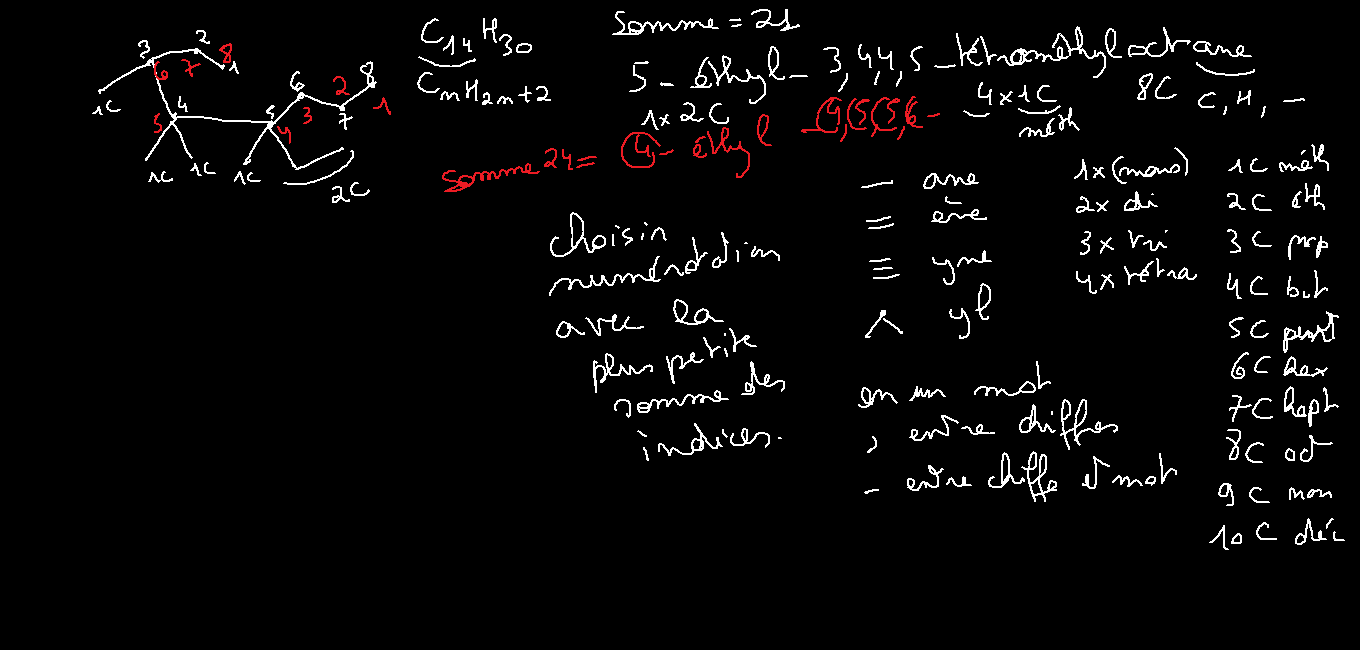 Somme = 21
C14H30
CnH2n+2
5 - éthyl - 3,4,4,5 - tétraméthyloctane
1x 2C
4 x 1C
méth
8C
C, H, —
Somme 24 = 4 - éthyl - 4,5,5,6 -
3 2 8
6 7 1
1C
4
5
5
4
6 2 8
3 7 1
1C 1C 1C
2C
choisir
numérotation
avec la
plus petite
somme des
indices.
— ane
= ène
≡ yne
yl
en un mot
, entre chiffres
- entre chiffre et mot
1x (mono)
2x di
3x tri
4x tétra
1C méth
2C éth
3C prop
4C but
5C pent
6C hex
7C hept
8C oct
9C non
10C déc